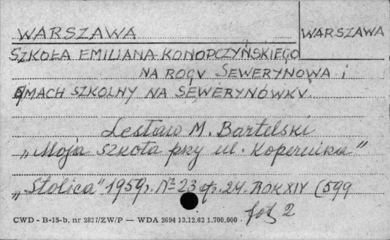 WARSZAWA
WARSZAWA
SZKOŁA EMILIANA KONOPCZYŃSKIEGO
NA ROGU SEWERYNOWA i
GMACH SZKOLNY NA SEWERYNÓWKU.
Lesław M. Bartelski
„Moja szkoła przy ul. Kopernika”
„Stolica” 1959 r. Nr 23 s. 24. ROK XIV (599
fot. 2
CWD - B-15-b, nr 2827/ZW/P — WDA 2694 13.12.62 1.700.000